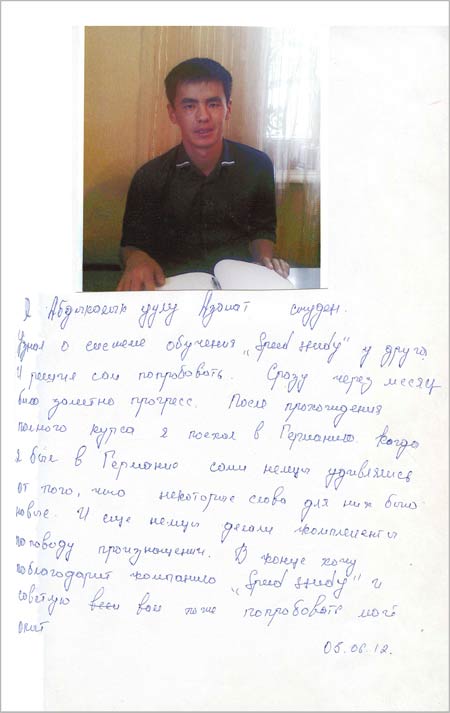 Я Абдыкалык уулу Азамат студен.
Узнал о системе обучения „Speed study" у друга
и решил сам попробовать. Сразу через месяц
было заметно прогресс. После прохождения
полного курса я поехал в Германию. Когда
я был в Германие сами немцы удивлялись
от того, что некоторые слова для них было
новые. И еще немцы делали комплементы
по поводу произношении. В конце хочу
поблагодарит компанию „Speed study" и
советую вам тоже попробовать мой
опит
05.06.12.